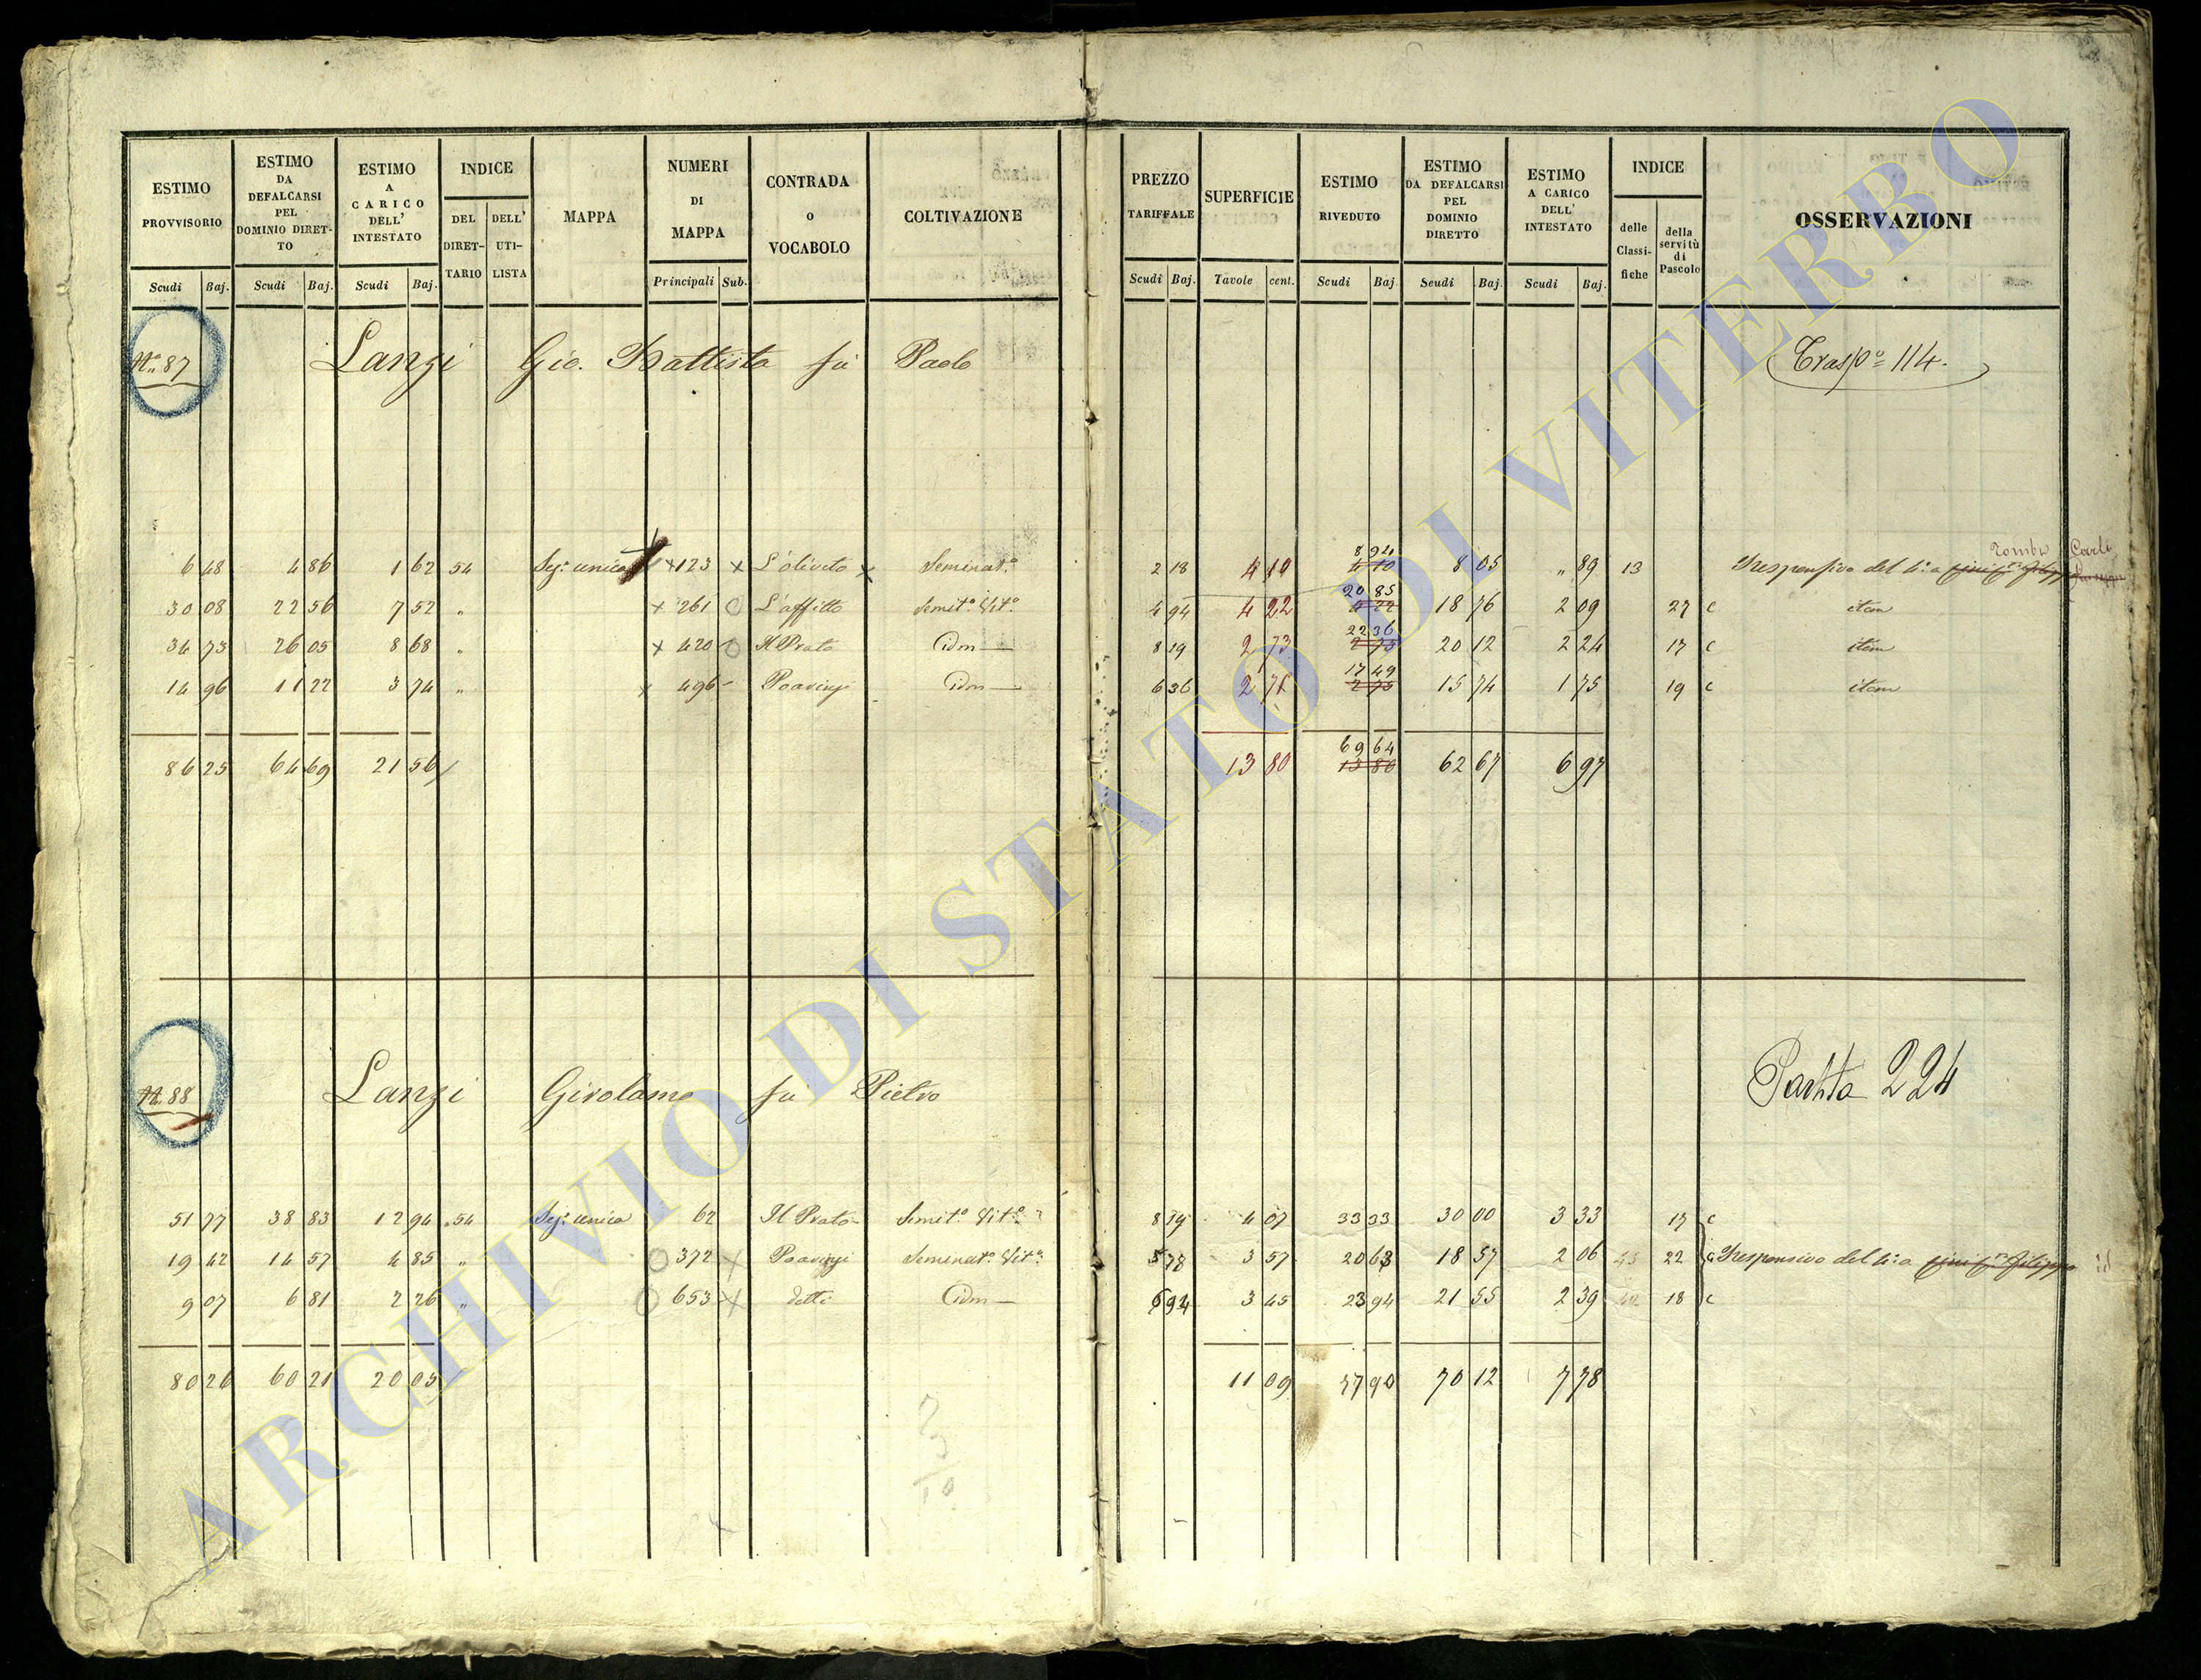 ESTIMO PROVVISORIO
ESTIMO DA DEFALCARSI PEL DOMINIO DIRET-TO
ESTIMO A CARICO DELL' INTESTATO
INDICE
DEL DIRET-TARIO
DELL' UTI-LISTA
MAPPA
NUMERI DI MAPPA
CONTRADA o VOCABOLO
COLTIVAZIONE
PREZZO TARIFFALE
SUPERFICIE
ESTIMO RIVEDUTO
ESTIMO DA DEFALCARSI PEL DOMINIO DIRETTO
ESTIMO A CARICO DELL' INTESTATO
INDICE
delle Classi-fiche
della servitù di Pascolo
OSSERVAZIONI
Scudi Baj. Scudi Baj. Scudi Baj. Principali Sub. Scudi Baj. Tavole cent. Scudi Baj Scudi Baj. Scudi Baj.
No. 87 Lanzi Gio. Battista fu Paolo Trasp.o 114.
6 48 4 86 1 62 54 Sez.e unica x 123 x L'oliveto x Seminat.o 2 18 4 10 8 94 4 10 8 05 " 89 13 Responsivo del
30 08 22 56 7 52 " x 261 L'affitto Semit.o Vit.o 4 94 4 22 20 85 4 22 18 76 2 09 27 c item
34 73 26 05 8 68 " x 420 Il Prato Idm 8 19 2 73 22 36 2 73 20 12 2 24 17 c item
14 96 11 22 3 74 " x 496 Idm 6 36 2 75 17 49 2 75 15 74 1 75 19 c item
86 25 64 69 21 56 13 80 69 64 13 80 62 67 6 97
N. 88 Lanzi Girolamo fu Pietro Partita 224
51 77 38 83 12 94 54 Sez.e unica 62 Il Prato Semit.o Vit.o 8 19 4 07 33 33 30 00 3 33 17 c
19 42 14 57 4 85 " 372 x Seminat.o Vit.o 5 78 3 57 20 63 18 57 2 06 22 c Responsivo del
9 07 6 81 2 26 " 653 x detti Idm 6 94 3 45 23 94 21 55 2 39 18 c
80 26 60 21 20 05 11 09 77 90 70 12 7 78
ARCHIVIO DI STATO DI VITERBO